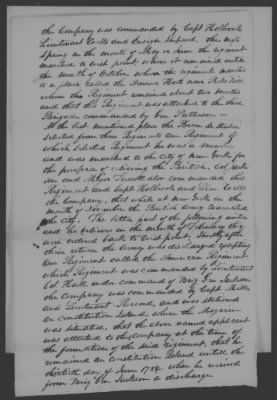 the Company was commanded by Capt Holbrook
Lieutenant Wells and Ensign Shepard. the next
Spring in the month of May or June the regiment
marched to west point, where it remained until
the month of October when the regiment marched
to a place called the
where this Regiment remained about two months
and that this Regiment was attached to the third
Brigade commanded by Gen Patterson —
At the last mentioned place
selected from this Regiment to one Regiment of
which selected Regiment he was a member
and was marched to the city of New York for
the purpose of relieving the British, Col
son and Major also commanded this
Regiment and Capt Holbrook and Lieu Wells
the Company, that while at New York in the
month of November the British Army evacuated
the City. The latter part of the following winter
and he believes in the month of February they
were ordered back to west point, Shortly after
their return the Army was discharged excepting
one Regiment called the American Regiment
which Regiment was commanded by Lieutenant
Col Hull under command of Brig. Gen Jackson
the Company was commanded by Capt Mills
and Lieutenant and was stationed
on Constitution Island, where the Magazine
was situated, that the above named applicant
was attached to this Company at the time of
the formation of the said regiment, that he
remained on Constitution Island until the
day of June 1784 when he received
from Brig. Gen Jackson a discharge